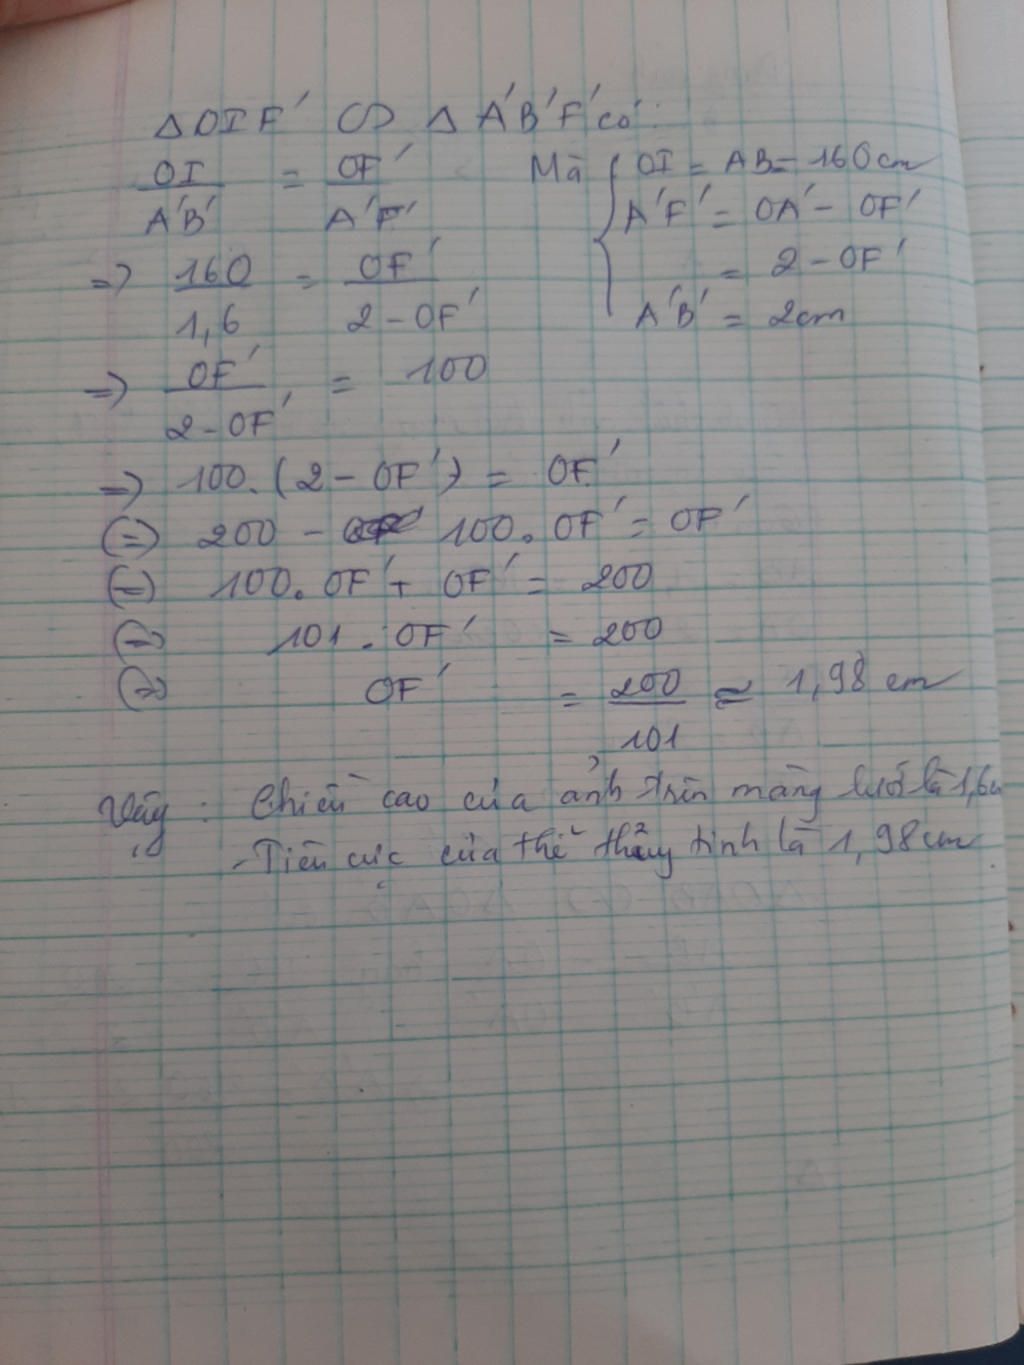 Δ OIF' ∽ Δ A'B'F' có:
OI / A'B' = OF' / A'F' Mà { OI = AB = 160cm
A'F' = OA' - OF'
= 2 - OF'
A'B' = 2cm
=> 160 / 1,6 = OF' / 2 - OF'
=> OF' / 2 - OF' = 100
=> 100.(2 - OF') = OF'
(=) 200 - 100. OF' = OF'
(=) 100. OF' + OF' = 200
(=) 101. OF' = 200
(=) OF' = 200 / 101 ≈ 1,98 cm
Vậy: Chiều cao của ảnh trên màng lưới là 1,6
- Tiêu cự của thể thủy tinh là 1,98cm